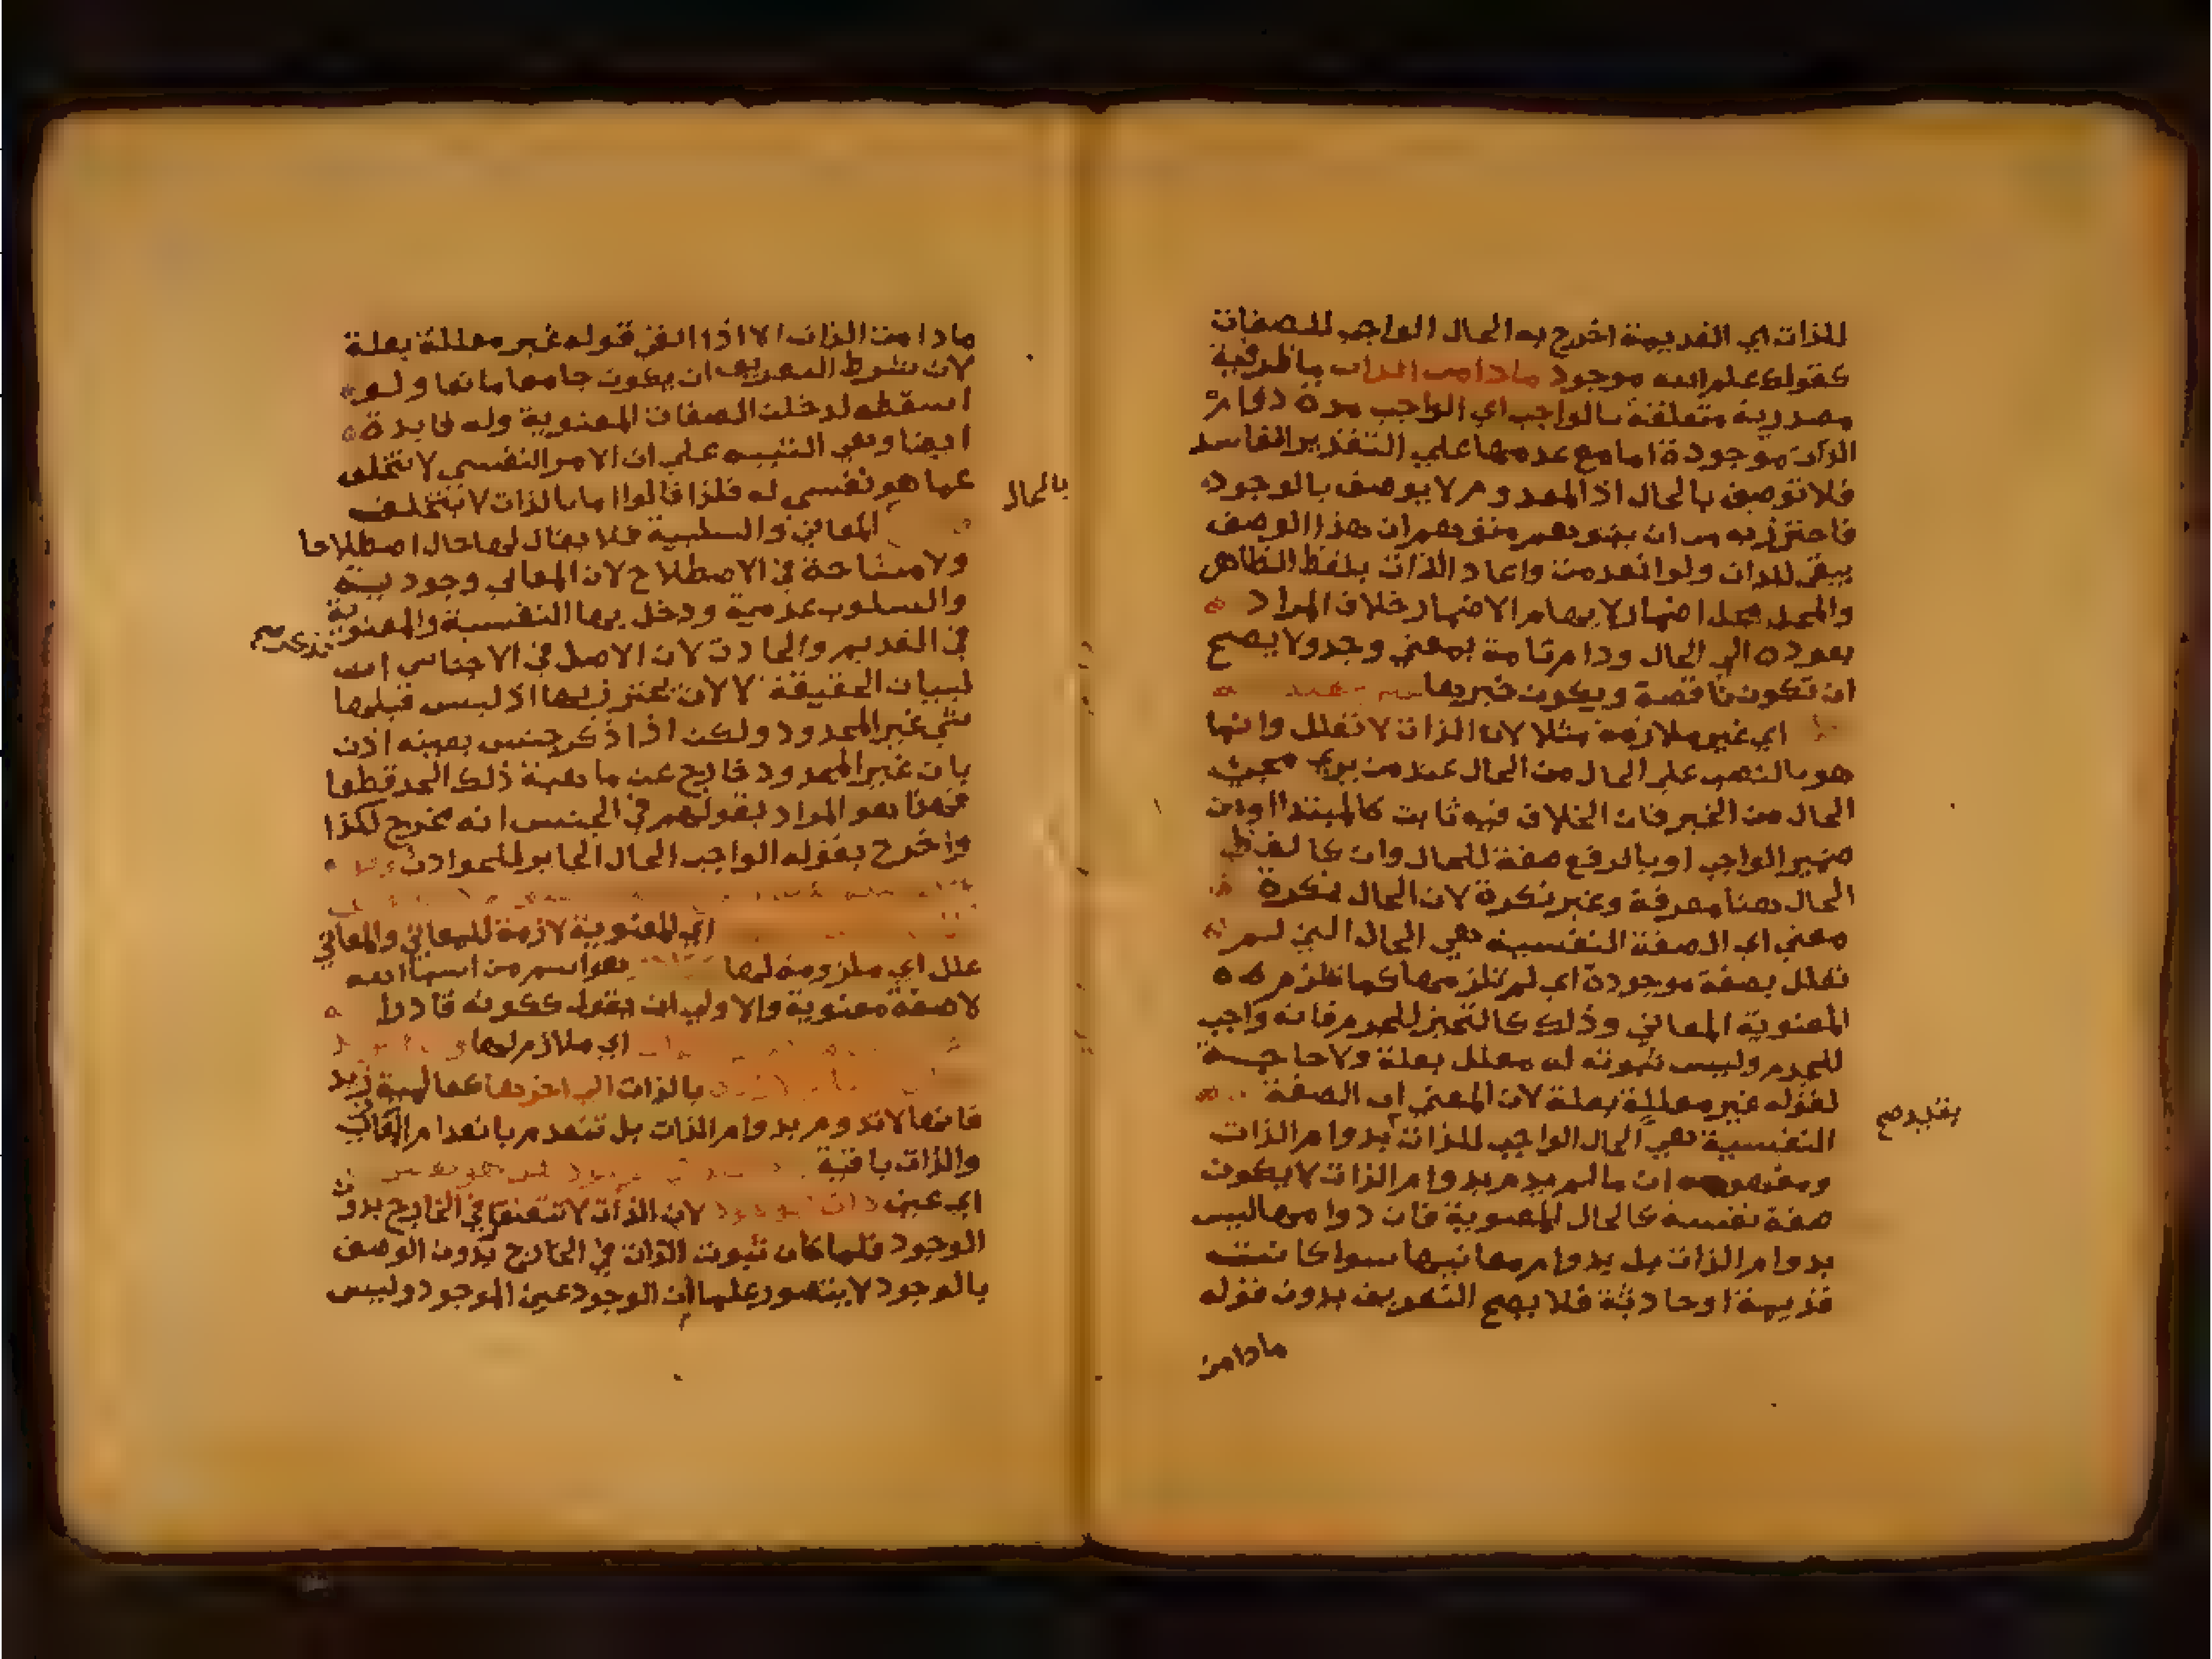 للذات اي القديمة اخرج به الحال الواجب للصفات
كقولك علم الله موجود مادامت الذات ما ظرفية
مصدرية متعلقة بالواجب اي الواجب مدة دوام
الذات موجودة اما مع عدمها علي التقدير الفاسد
فلا توصف بالحال اذ المعدوم لا يوصف بالوجود
فاحترز به من ان يتوهم متوهم ان هذا الوصف
يبقي للذات ولو انعدمت واعاد الذات بلفظ الظاهر
والمحل محل اضمار لايهام الاضمار خلاف المراد
بعوده الي الحال ودام تامة بمعني وجد ولا يصح
ان تكون ناقصة ويكون خبرها
اي غير ملازمة مثلا لان الذات لا تعلل وانها
هو بالنصب علي الحال من الحال عند من يري مجيئ
الحال من الخبر فان الخلاف فيه ثابت كالمبتدا او من
ضمير الواجب او بالرفع صفة للحال وان كا لفظ
الحال هنا معرفة وغير نكرة لان الحال نكرة
معني اي الصفة النفسية هي الحال التي لم
تعلل بصفة موجودة اي لم تلزمها كما تلزم
المعنوية المعاني وذلك كالتحيز للجرم فانه واجب
للجرم وليس ثبوته له معلل بعلة ولا حاجة
لقوله غير معللة بعلة لان المعني ان الصفة
النفسية هي الحال الواجب للذات بدوام الذات
ومفهومه ان مالم يدم بدوام الذات لا يكون
صفة نفسية كالحال المعنوية فان دوامها ليس
بدوام الذات بل بدوام معانيها سوا كانت
قديمة او حادثة فلا يصح التعريف بدون قوله
مادامت
مادامت الذات الا اذا الغز قوله غير معللة بعلة
لان شرط التعريف ان يكون جامعا مانعا ولو
اسقطه لدخلت الصفات المعنوية وله فايدة
ايضا وهي التنبيه علي ان الامر النفسي لا يتخلف
عما هو نفسي له فلذا قالوا ما بالذات لا يتخلف
بالحال
المعاني والسلبية فلا يقال لها حال اصطلاحا
ولا مشاحة في الاصطلاح لان المعاني وجودية
والسلوب عدمية ودخل بها النفسية والمعنوية
في القديم والحادث لان الاصل في الاجناس انه
لبيان الحقيقة لا لان يحترز بها اذ ليس قبلها
شي غير المحدود ولكن اذا ذكر جنس بعينه اذن
بان غير المحدود خارج عن ماهية ذلك الحد قطعا
فهذا هو المراد بقولهم في الجنس انه مخرج لكذا
واخرج بقوله الواجب الحال الجايز للحوادث
اي المعنوية لازمة للمعاني والمعاني
علل اي ملزومة لها هو اسم من اسما الله
لا صفة معنوية والاولي ان يقول ككونه قادرا
اي ملازم لها
بالذات الي اخرها كعالمية زيد
فانها لا تدوم بدوام الذات بل تنعدم بانعدام
والذات باقية
اي عين ذات لان الذات لا تتعقل في الخارج بدون
الوجود فلما كان ثبوت الذات في الخارج بدون الوصف
بالوجود لا يتصور علما ان الوجود عين الموجود وليس